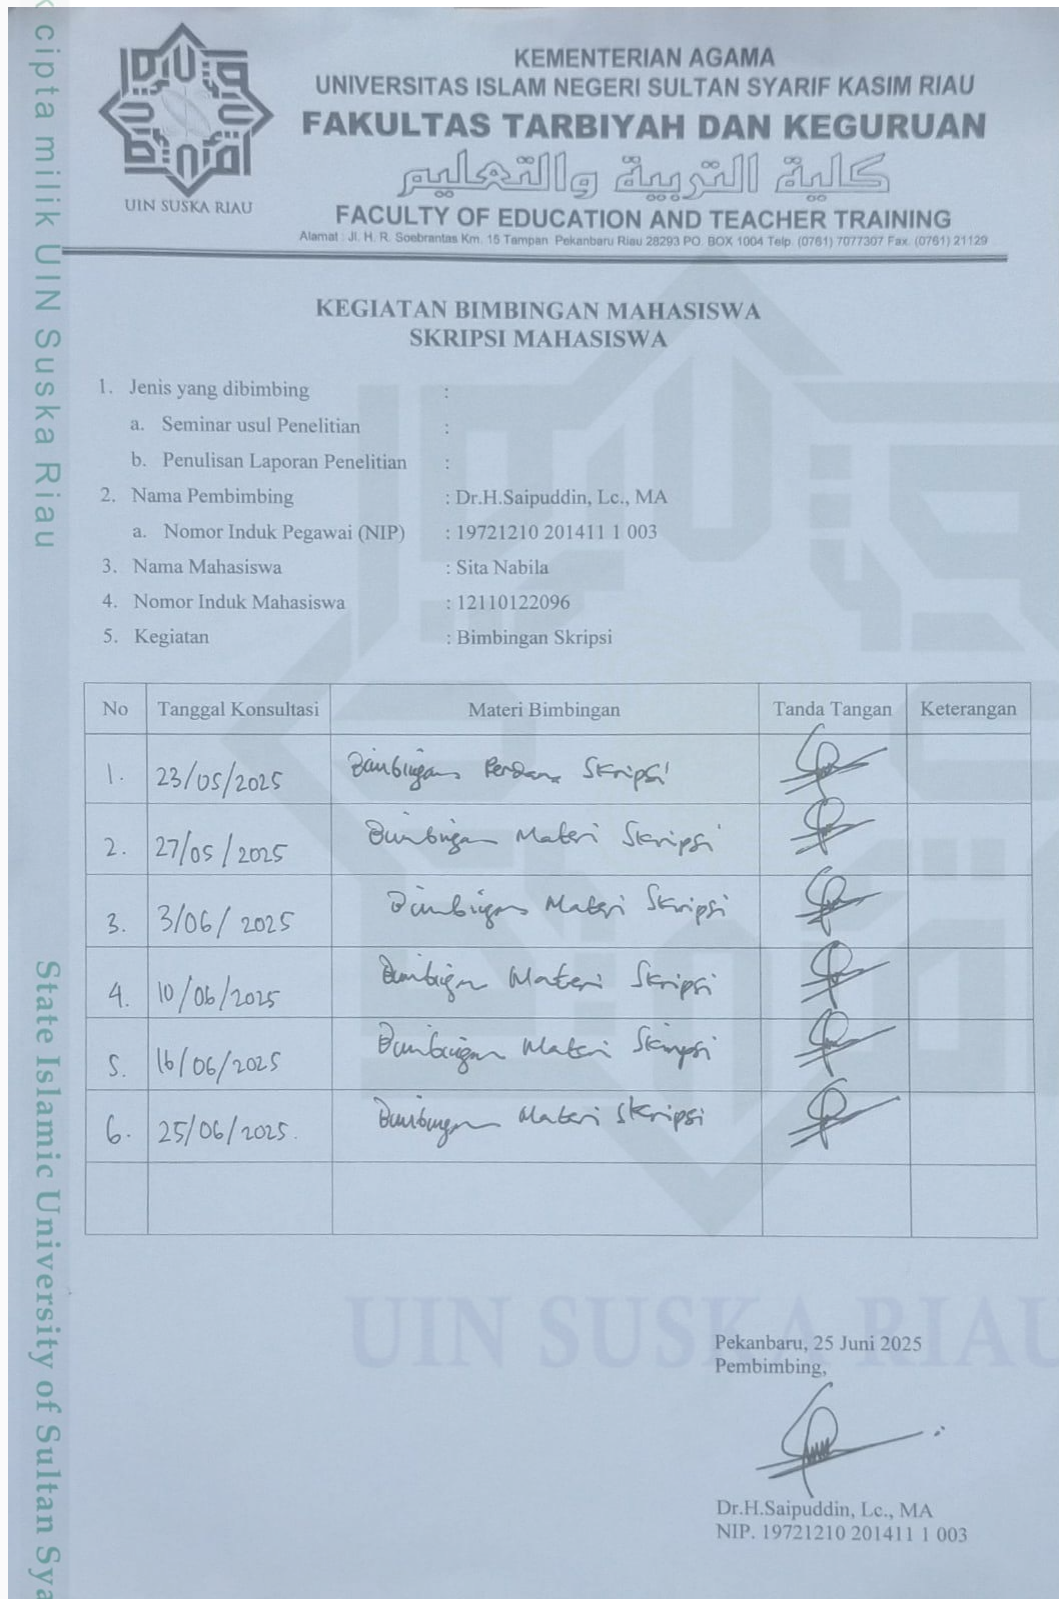 cipta milik UIN Suska Riau
State Islamic University of Sultan Sya
UIN SUSKA RIAU
KEMENTERIAN AGAMA
UNIVERSITAS ISLAM NEGERI SULTAN SYARIF KASIM RIAU
FAKULTAS TARBIYAH DAN KEGURUAN
كلية التربية والتعليم
FACULTY OF EDUCATION AND TEACHER TRAINING
Alamat : Jl. H. R. Soebrantas Km. 15 Tampan Pekanbaru Riau 28293 PO. BOX 1004 Telp. (0761) 7077307 Fax. (0761) 21129
KEGIATAN BIMBINGAN MAHASISWA
SKRIPSI MAHASISWA
1. Jenis yang dibimbing :
a. Seminar usul Penelitian :
b. Penulisan Laporan Penelitian :
2. Nama Pembimbing : Dr.H.Saipuddin, Lc., MA
a. Nomor Induk Pegawai (NIP) : 19721210 201411 1 003
3. Nama Mahasiswa : Sita Nabila
4. Nomor Induk Mahasiswa : 12110122096
5. Kegiatan : Bimbingan Skripsi
No Tanggal Konsultasi Materi Bimbingan Tanda Tangan Keterangan
1. 23/05/2025 Bimbingan Perdana Skripsi
2. 27/05/2025 Bimbingan Materi Skripsi
3. 3/06/2025 Bimbingan Materi Skripsi
4. 10/06/2025 Bimbingan Materi Skripsi
5. 16/06/2025 Bimbingan Materi Skripsi
6. 25/06/2025. Bimbingan Materi Skripsi
UIN SUSKA RIAU
Pekanbaru, 25 Juni 2025
Pembimbing,
Dr.H.Saipuddin, Lc., MA
NIP. 19721210 201411 1 003